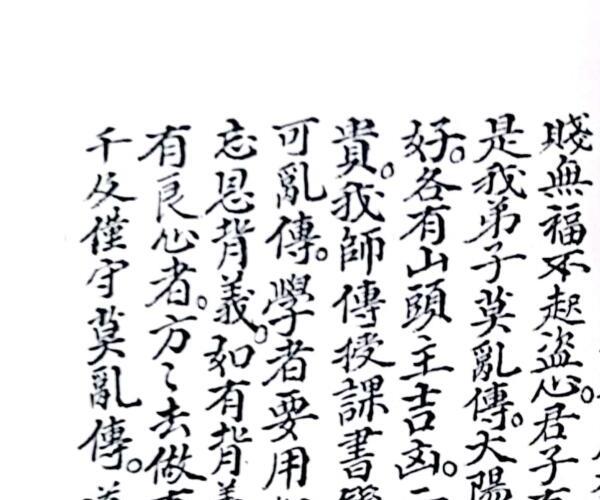 賤無福不起盜心。君子
是我弟子莫亂傳。太陽
好。各有山頭主吉凶。
貴。我師傳授課書
可亂傳。學者要用
忘恩背義。如有背義
有良心者。方〻去做
千叐僅守莫亂傳。